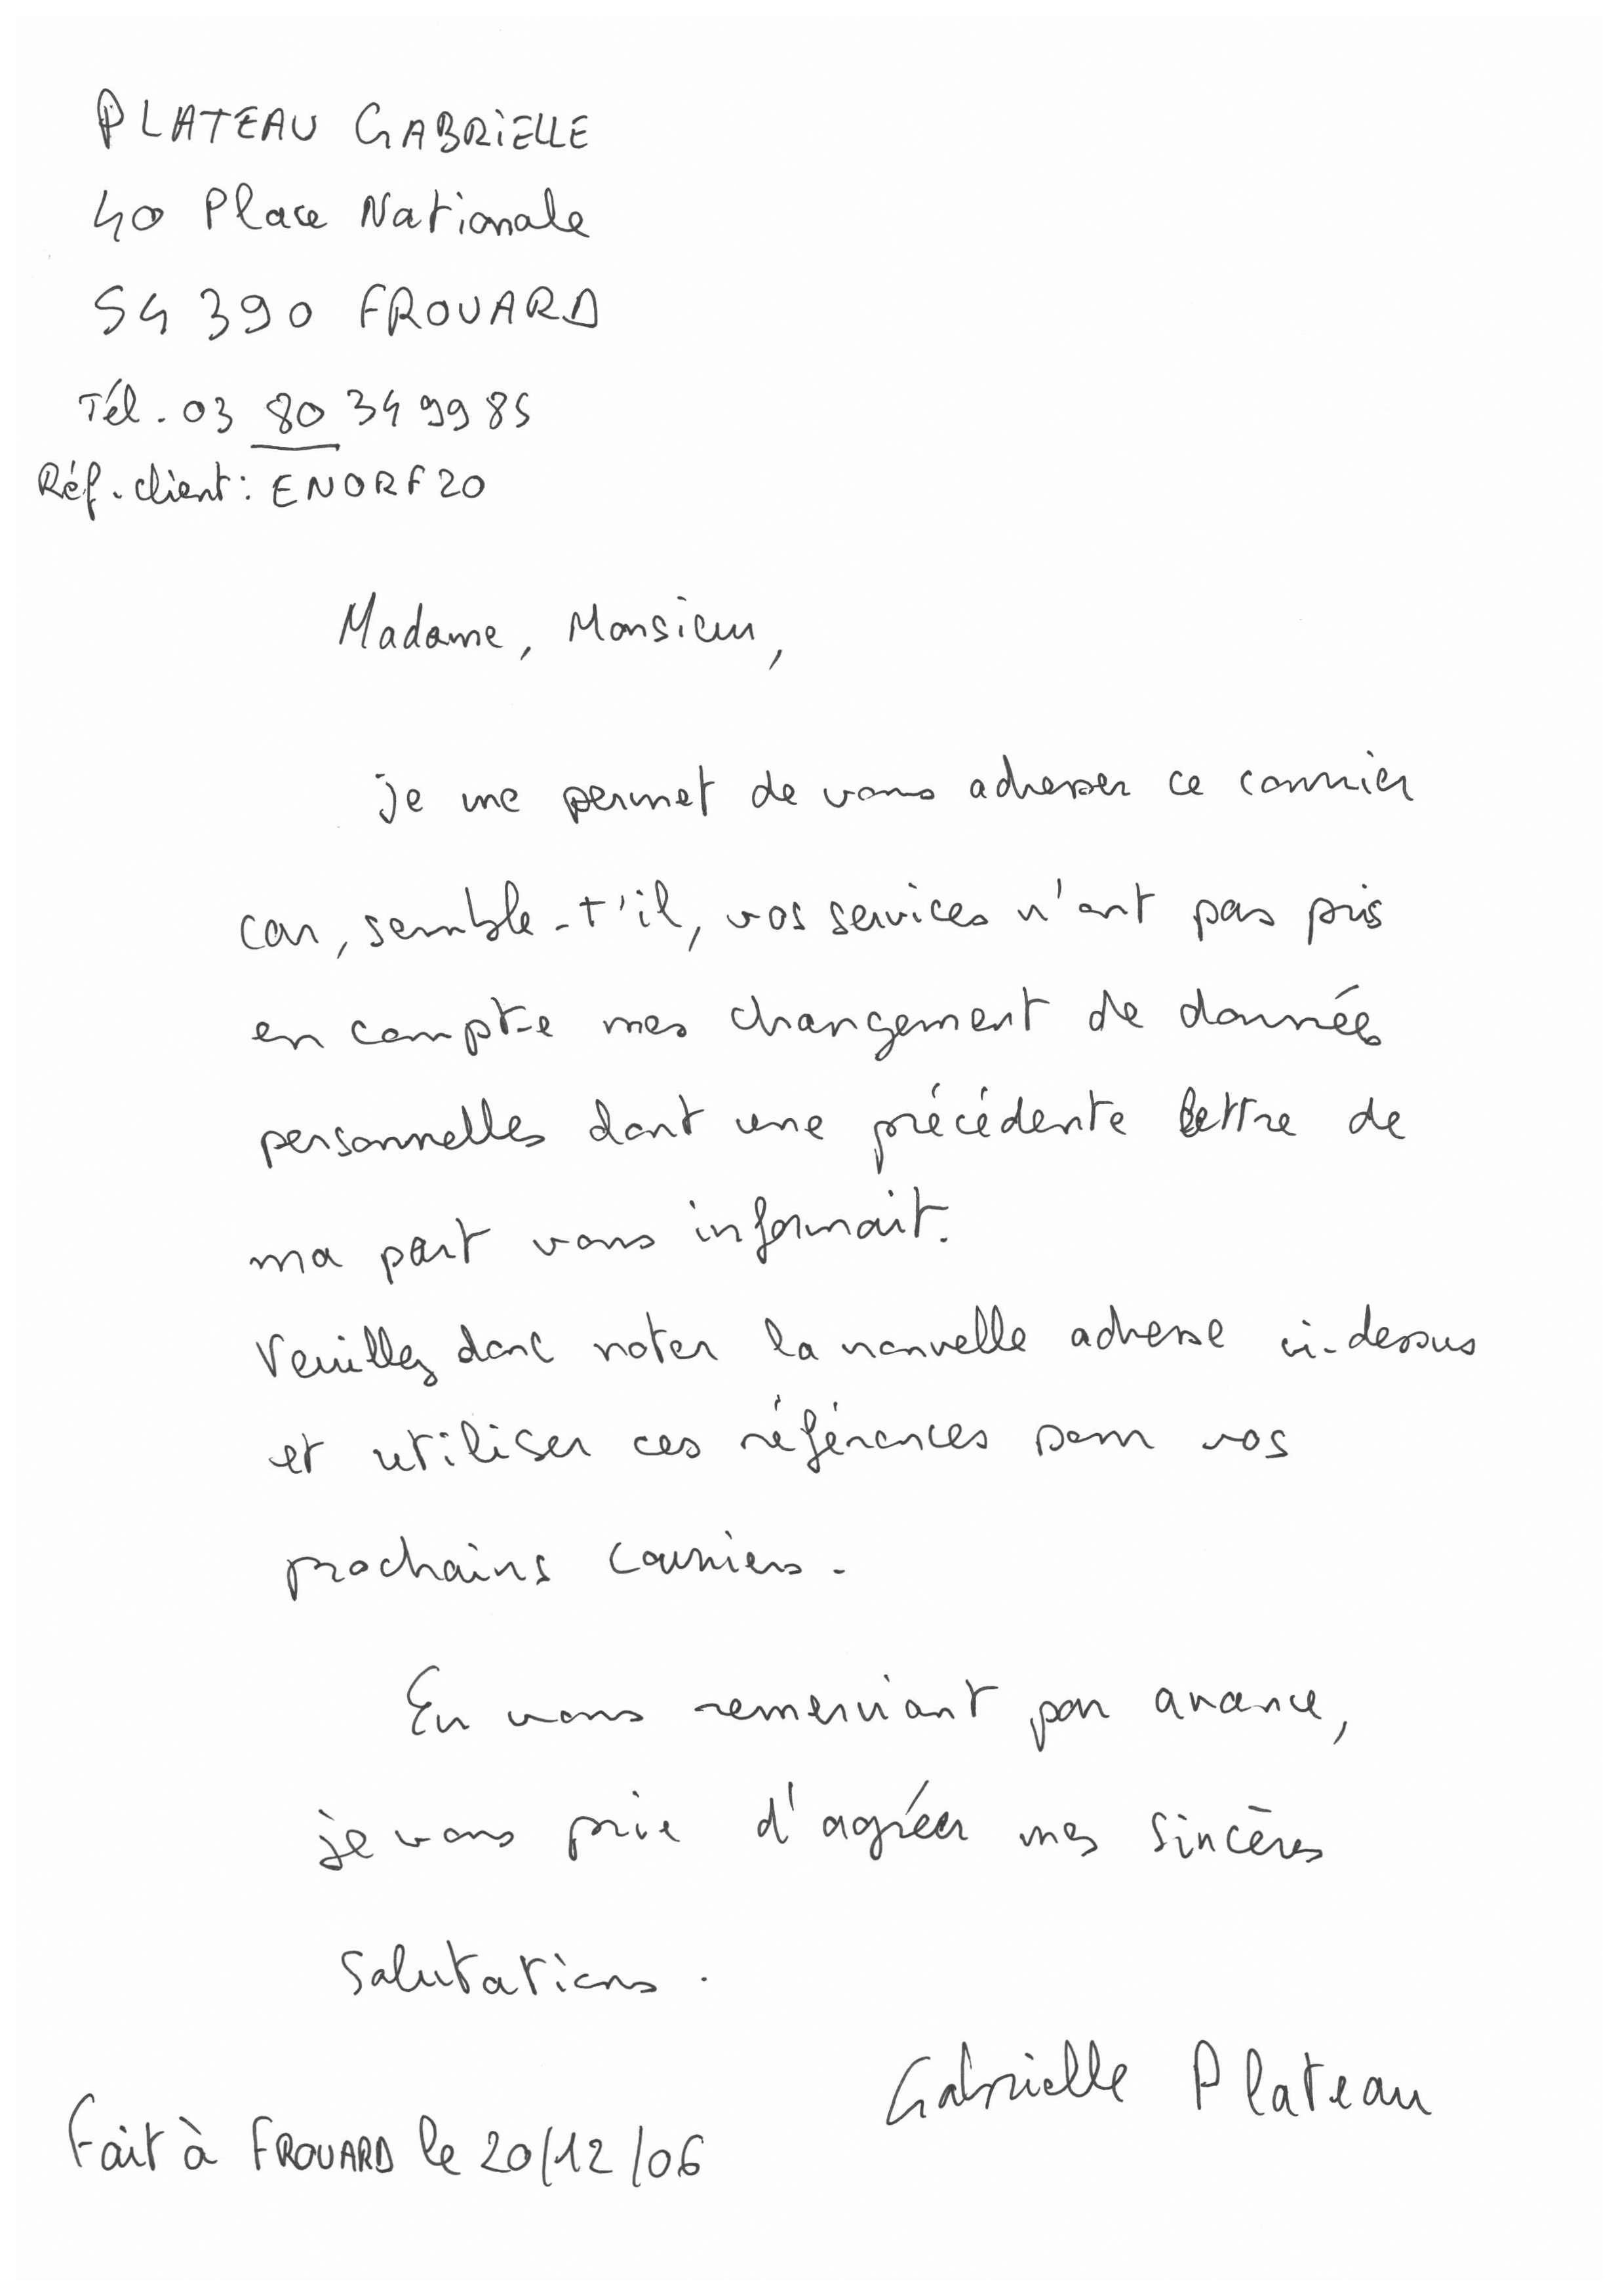 PLATEAU GABRIELLE
40 Place Nationale
54 390 FROUARD
Tél. 03 80 34 99 85
Réf. client : ENORF20
Madame, Monsieur,
je me permet de vous adresser ce courrier
car, semble-t'il, vos services n'ont pas pris
en compte mes changement de données
personnelles dont une précédente lettre de
ma part vous informait.
Veuillez donc noter la nouvelle adresse ci-dessus
et utiliser ces références pour vos
prochains courriers.
En vous remerciant par avance,
je vous prie d'agréer mes sincères
salutations.
Gabrielle Plateau
Fait à FROUARD le 20/12/06